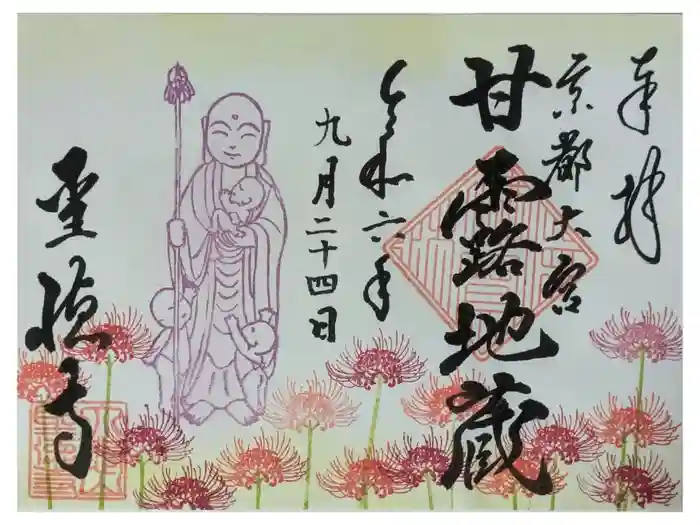 奉拝
京都大宮
甘露地蔵
令和六年
九月二十四日
聖徳寺